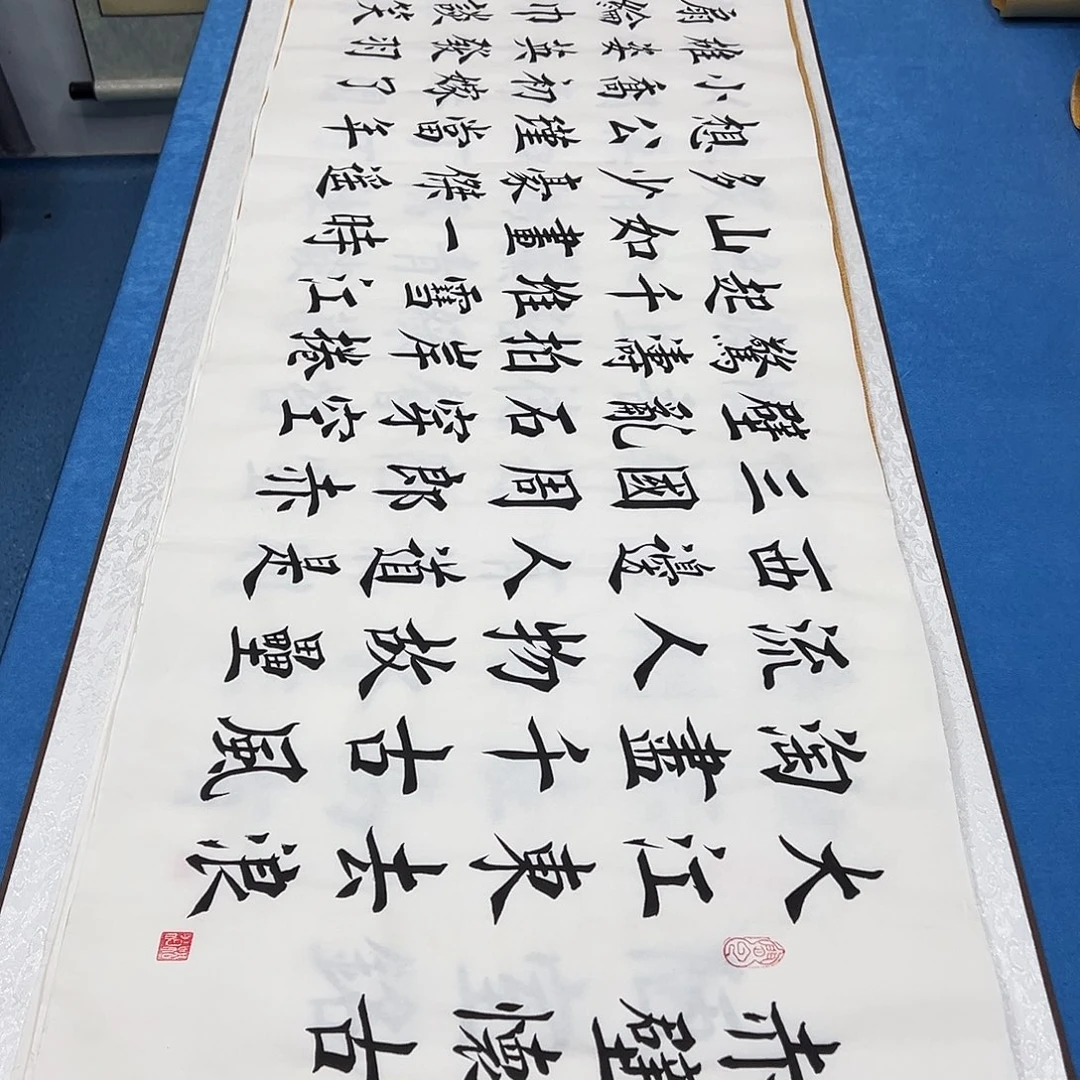 赤壁懷古
大江東去浪
淘盡千古風
流人物故壘
西邊人道是
三國周郎赤
壁亂石穿空
驚濤拍岸捲
起千堆雪江
山如畫一時
多少豪傑遙
想公瑾當年
小喬初嫁了
雄姿英發羽
扇綸巾談笑